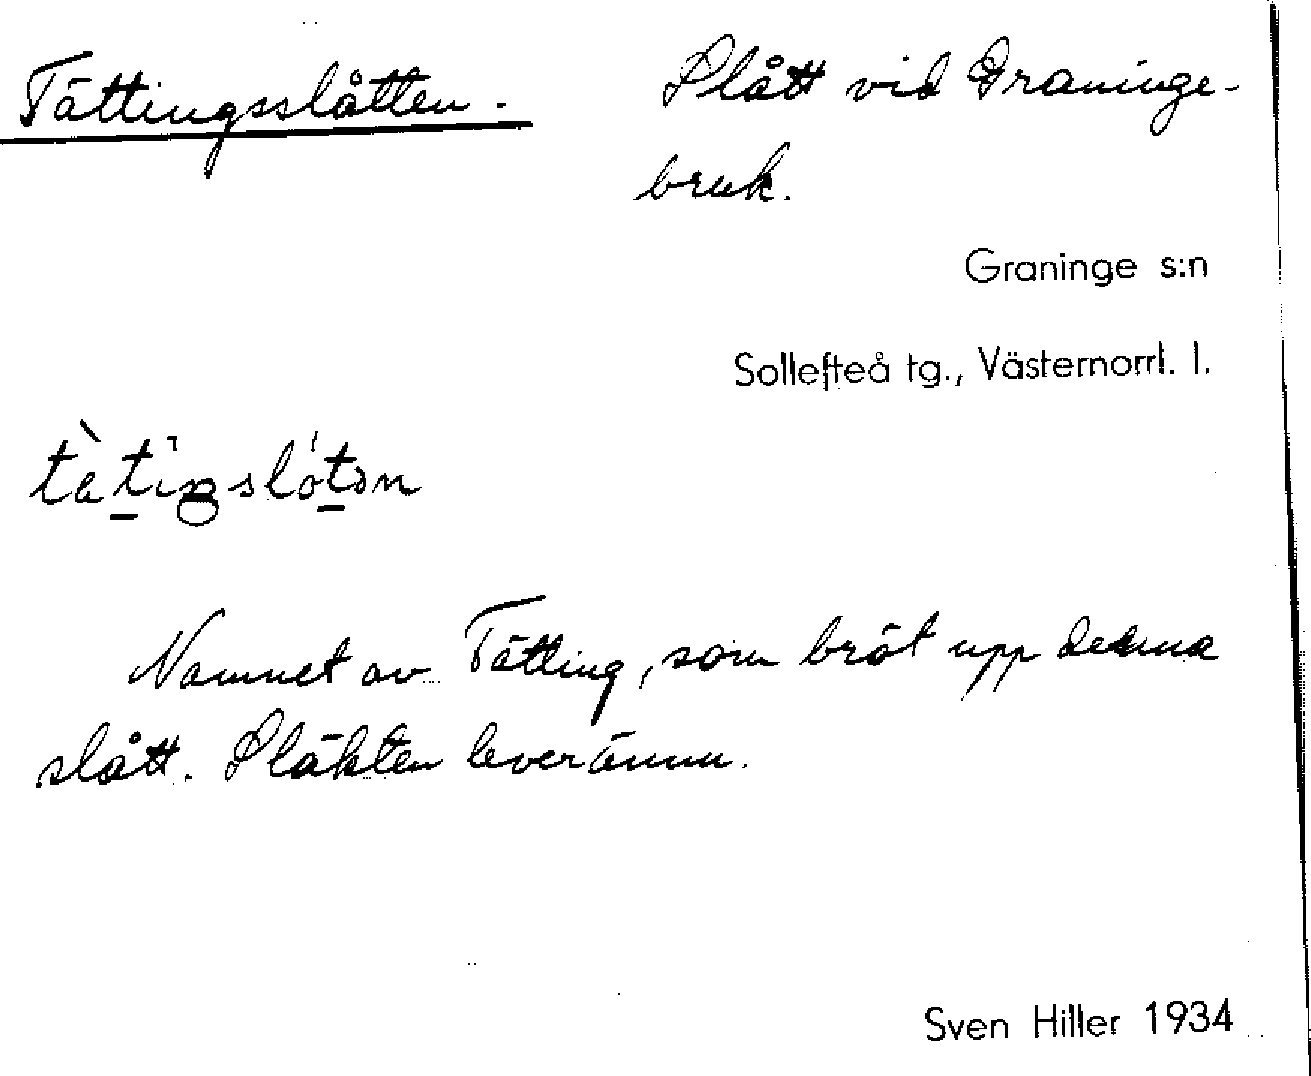 Tättingsslåtten.
Slått vid Graninge-
bruk.
Graninge s:n
Sollefteå tg., Västernorrl. l.
Namnet av Tätting, som bröt upp denna
slått. Släkten lever ännu.
Sven Hiller 1934